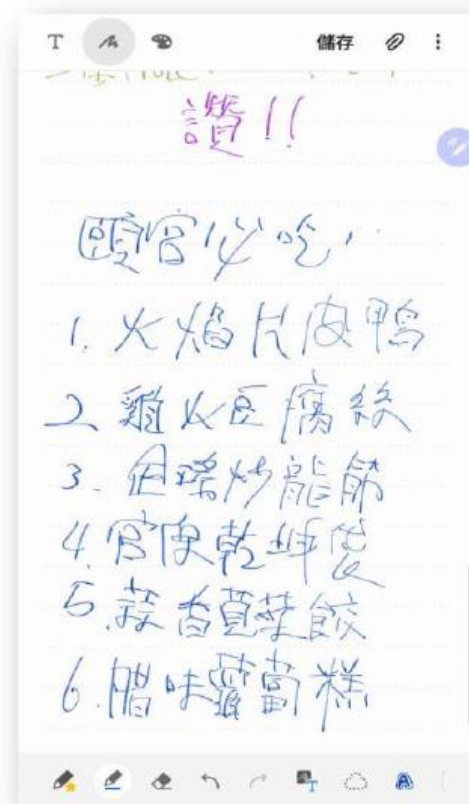 T 儲存
讚!!
頤宮必吃:
1. 火焰片皮鴨
2. 雞火豆腐絲
3. 避瑤炒龍筋
4. 官府乾坤袋
5. 蒜香莧菜餃
6. 腊味蘿蔔糕